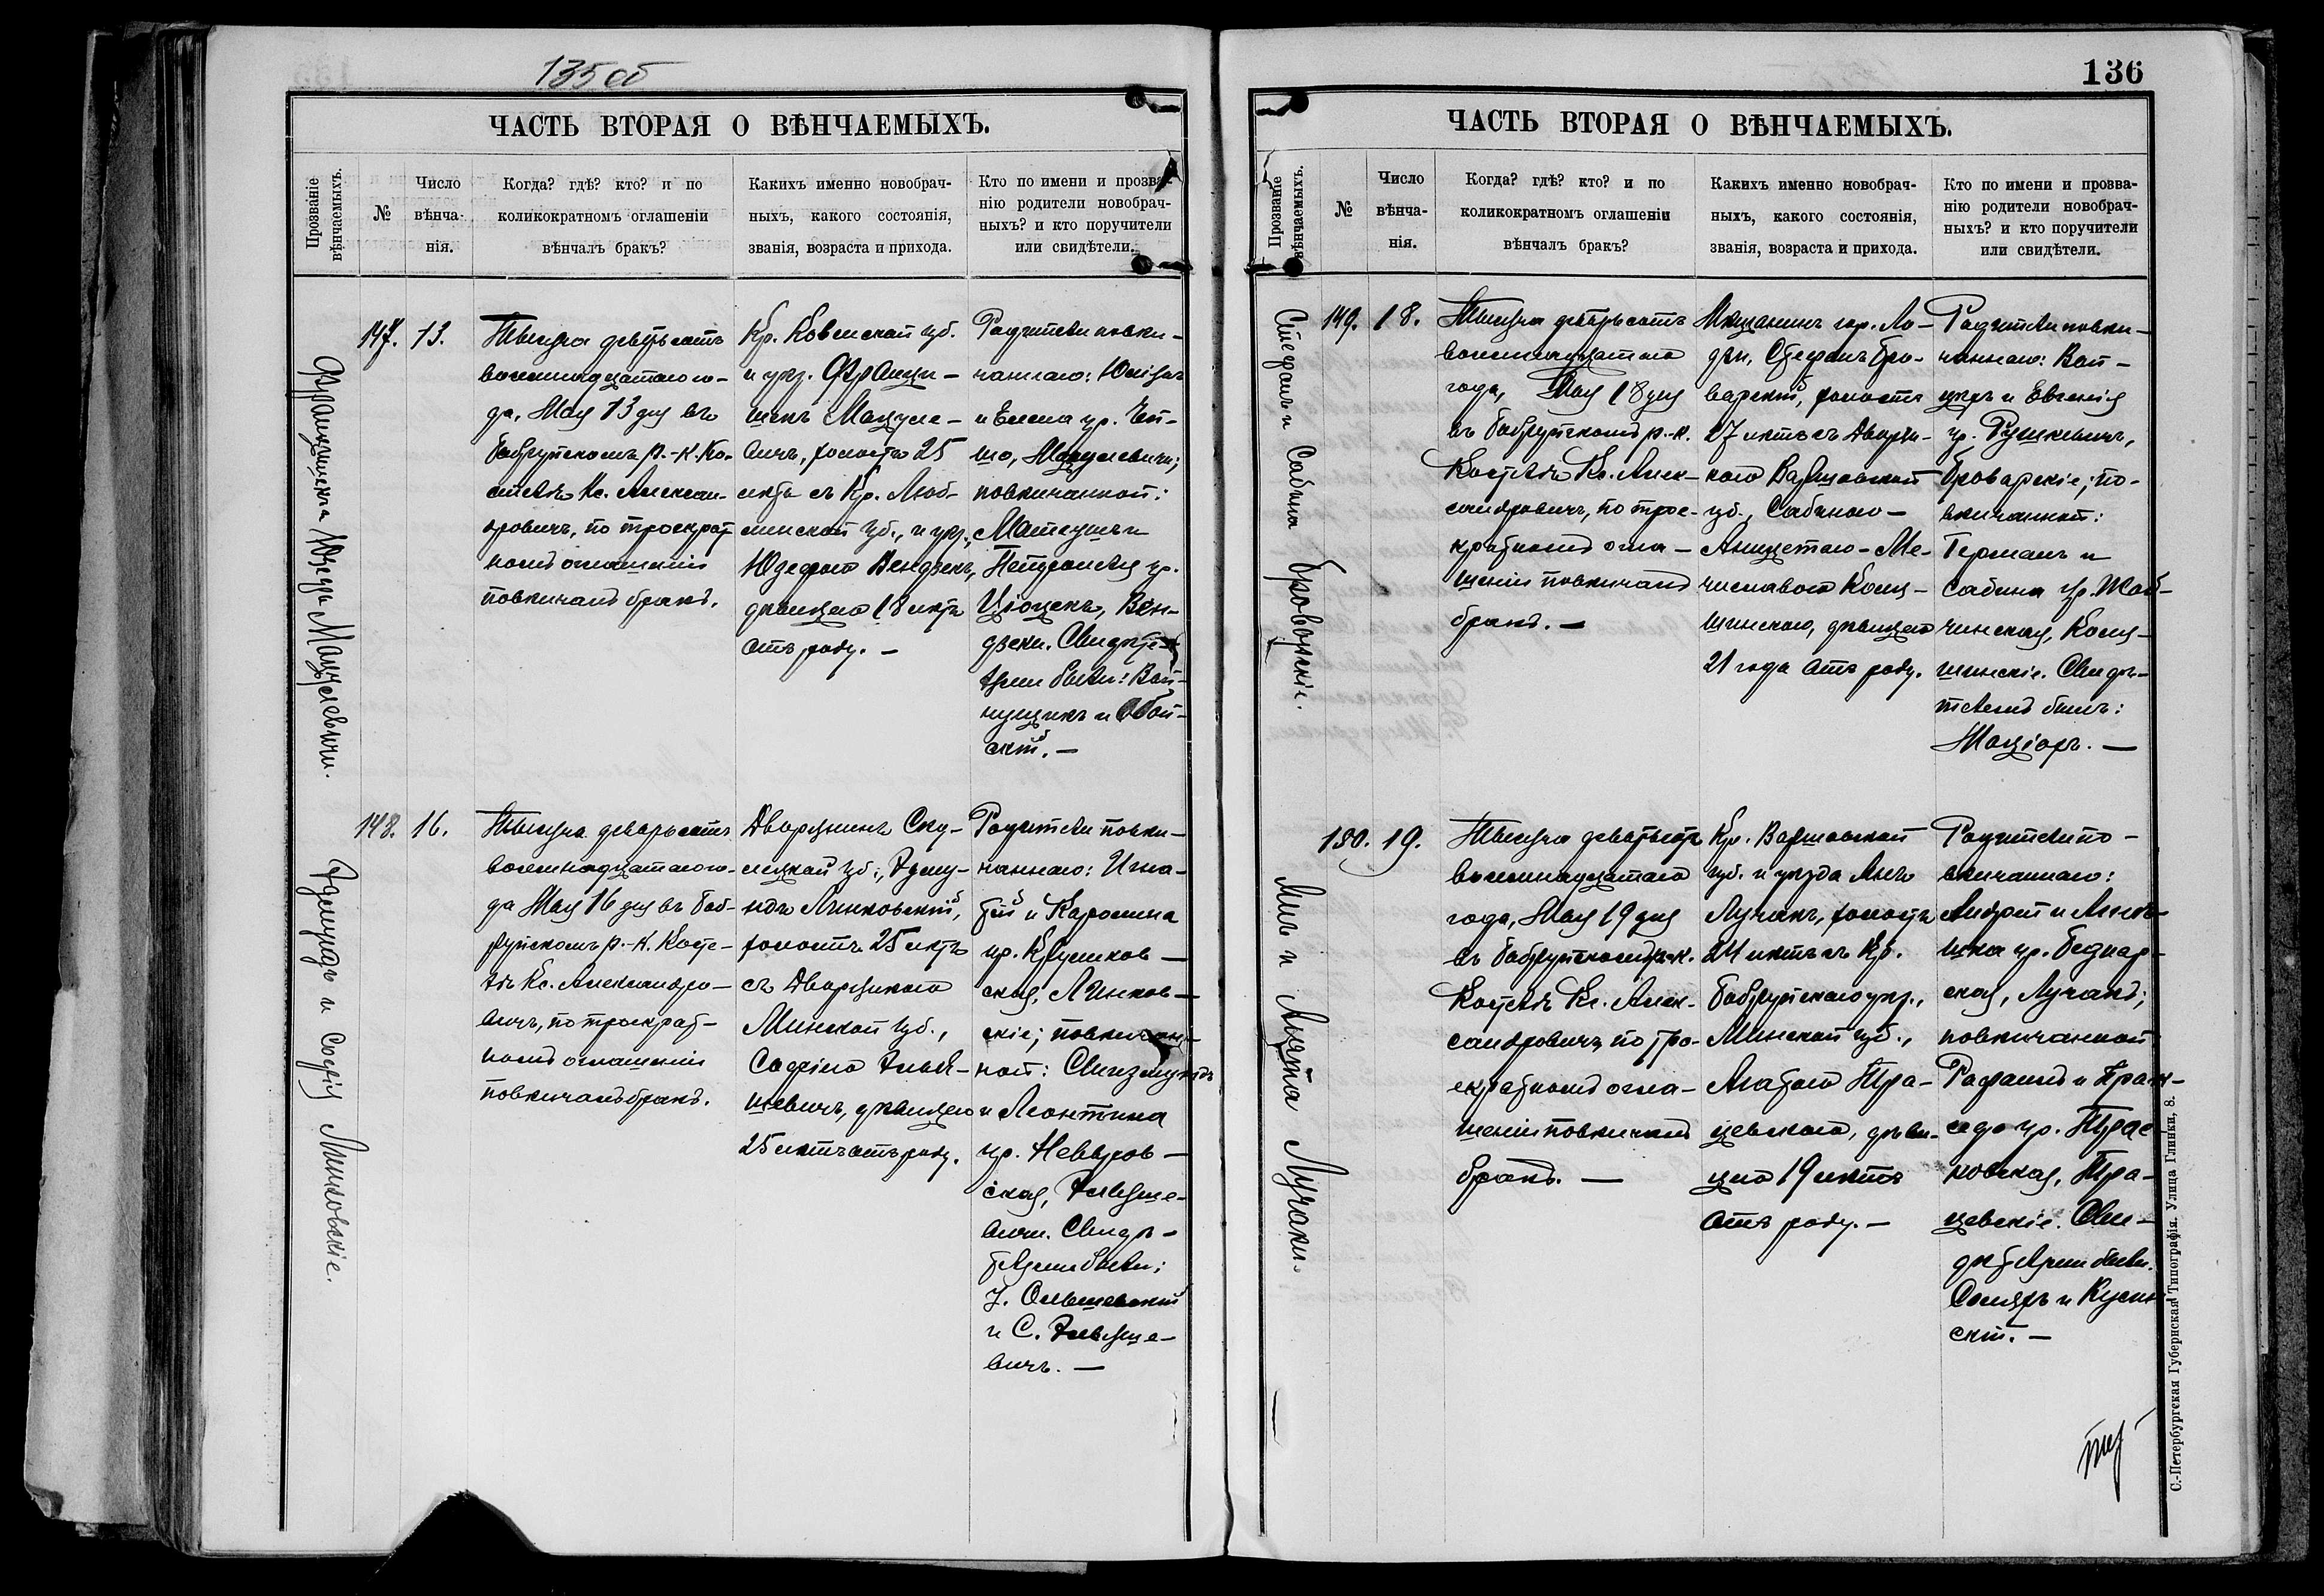 135 об
ЧАСТЬ ВТОРАЯ О ВѢНЧАЕМЫХЪ.
Прозваніе
вѣнчаемыхъ.
№
Число
вѣнча-
нія.
Когда? гдѣ? кто? и по
коликократномъ оглашеніи
вѣнчалъ бракъ?
Какихъ именно новобрач-
ныхъ, какого состоянія,
званія, возраста и прихода.
Кто по имени и прозва-
нію родители новобрач-
ныхъ? и кто поручители
или свидѣтели.
Францишекъ Юзефа Мацулевичи.
147.
13.
Тысяча девятьсотъ
восемнадцатаго го-
да, Мая 13 дня въ
Бобруйскомъ р.-к. Ко-
стелѣ Кс. Алексан-
дровичъ, по троекрат
номъ оглашеніи
повѣнчалъ бракъ.
Кр. Ковенской губ.
и уѣз. Францы-
шекъ Мацуле-
вичъ, холостъ 25
лѣтъ съ Кр. Люб-
линской губ., и уѣз.,
Юзефою Вендзекъ,
дѣвицею 18 лѣтъ
отъ роду. —
Родители повѣн-
чаннаго:
и Елена ур.
Мацулевичи;
повѣнчанной:
Матеушъ и
Петронеля ур.
Ціоцекъ, Вен-
дзеки. Свидѣте-
лями были: Вай-
и
скій. —
Эдмундъ и Софія Линковскіе.
148.
16.
Тысяча девятьсотъ
восемнадцатаго го-
да Мая 16 дня въ Боб-
руйскомъ р.-к. Косте-
лѣ Кс. Александро-
вичъ, по троекрат-
номъ оглашеніи
повѣнчалъ бракъ.
Дворянинъ Су-
губ., Эдму-
ндъ Линковскій,
холостъ 25 лѣтъ
съ Дворянкою
Минской губ.,
Софіею
шевичъ, дѣвицею
25 лѣтъ отъ роду.
Родители повѣн-
чаннаго: Игна-
тій и Каролина
ур. Крушков-
ская, Линков-
скіе; повѣнчан-
ной: Сигизмундъ
и Леонтина
ур. Невяров-
ская,
вичи. Свидѣ-
телями были:
Ольшевскій
и С.
вичъ. —
136
ЧАСТЬ ВТОРАЯ О ВѢНЧАЕМЫХЪ.
Прозваніе
вѣнчаемыхъ.
№
Число
вѣнча-
нія.
Когда? гдѣ? кто? и по
коликократномъ оглашеніи
вѣнчалъ бракъ?
Какихъ именно новобрач-
ныхъ, какого состоянія,
званія, возраста и прихода.
Кто по имени и прозва-
нію родители новобрач-
ныхъ? и кто поручители
или свидѣтели.
Стефанъ и Сабина Броварскіе.
149.
18.
Тысяча девятьсотъ
восемнадцатаго
года, Мая 18 дня
въ Бобруйскомъ р.-к.
Костелѣ Кс. Алек-
сандровичъ, по трое-
кратномъ огла-
шеніи повѣнчалъ
бракъ. —
Мѣщанинъ гор. Ло-
дзи, Стефанъ Бро-
варскій, холостъ
27 лѣтъ съ Дворян-
кою Варшавской
губ., Сабиною-
Анцетою-Ме-
числавою Коши-
шинскою, дѣвицею
21 года отъ роду.
Родители повѣн-
чаннаго: Вай-
цѣхъ и Евгенія
ур. Рушкевичъ,
Броварскіе; по-
вѣнчанной:
Германъ и
Сабина ур.
чинская,
шинскіе. Свидѣ-
телемъ былъ:
Мацioръ. —
Янъ и Агата Лучаки.
150.
19.
Тысяча девятьсотъ
восемнадцатаго
года, Мая 19 дня
въ Бобруйскомъ р-к.
Костелѣ Кс. Алек-
сандровичъ, по тро-
екратномъ огла-
шеніи повѣнчалъ
бракъ. —
Кр. Варшавской
губ. и уѣзда Янъ
Лучакъ, холостъ
24 лѣтъ съ Кр.
Бобруйскаго уѣз.,
Минской губ.,
Агатою Тра-
цевскою, дѣви-
цею 19 лѣтъ
отъ роду. —
Родители по-
вѣнчаннаго:
Андрей и Агнѣ-
шка ур. Беднар-
ская, Лучаки;
повѣнчанной
Рафаилъ и Прак-
седа ур.
ковская, Тра-
цевскіе. Сви-
дѣтелями были.
и
скій. —
С.-Петербургская Губернская Типографія. Улица Глинки, 8.